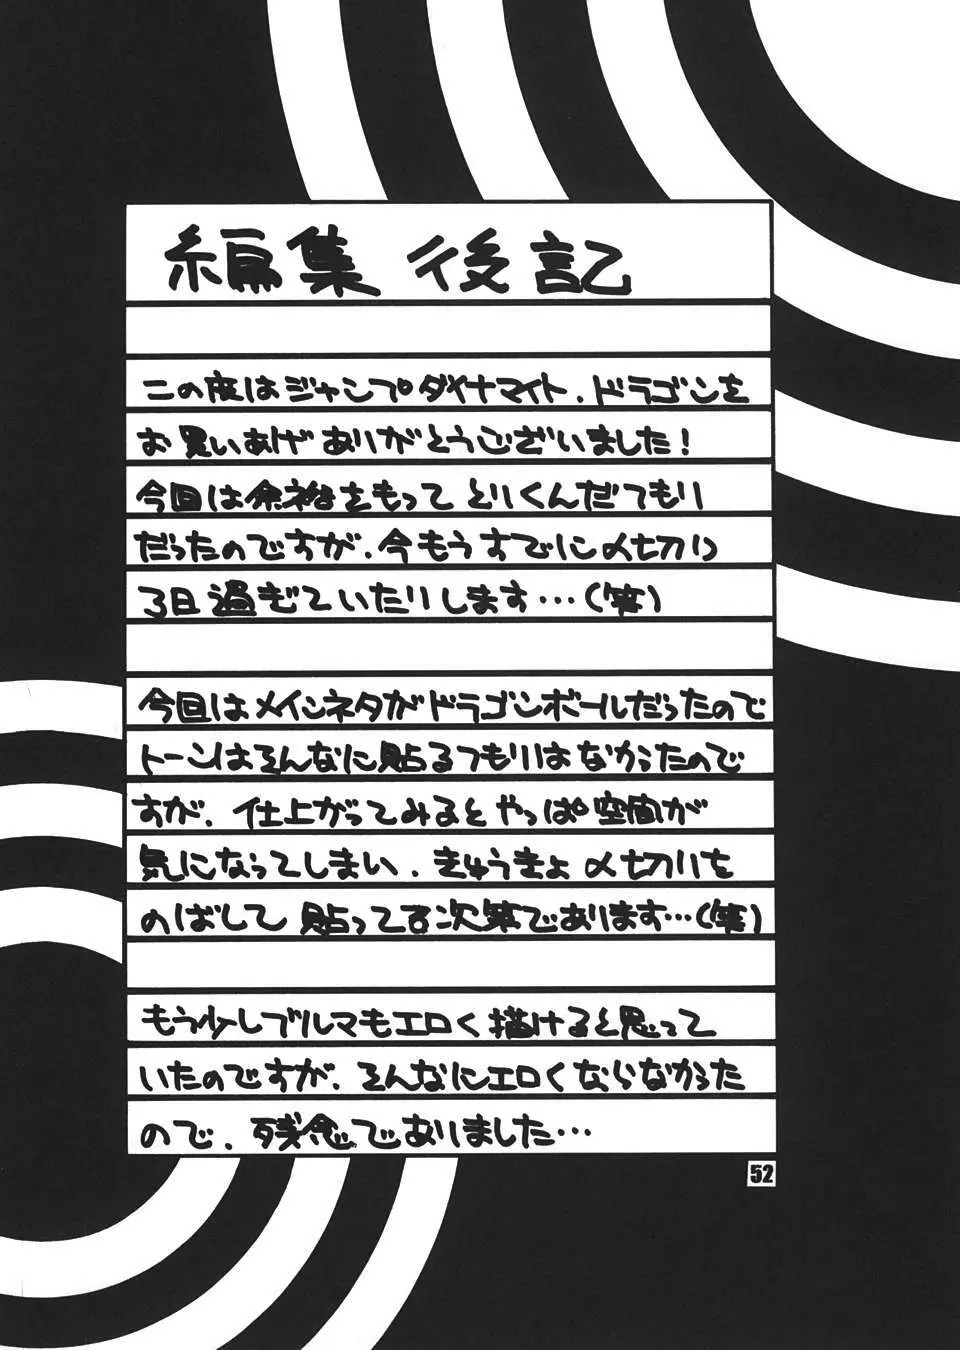 編集後記
この度はジャンプダイナマイト、ドラゴンを
お買いあげありがとうございました!
今回は余裕をもってとりくんだつもり
だったのですが、今もうすでに〆切り
3日過ぎていたりします…(笑)
今回はメインネタがドラゴンボールだったので
トーンはそんなに貼るつもりはなかったので
すが、仕上がってみるとやっぱ空間が
気になってしまい、きゅうきょ〆切りを
のばして貼ってる次第であります…(笑)
もう少しブルマもエロく描けると思って
いたのですが、そんなにエロくならなかった
ので、残念でありました…
52